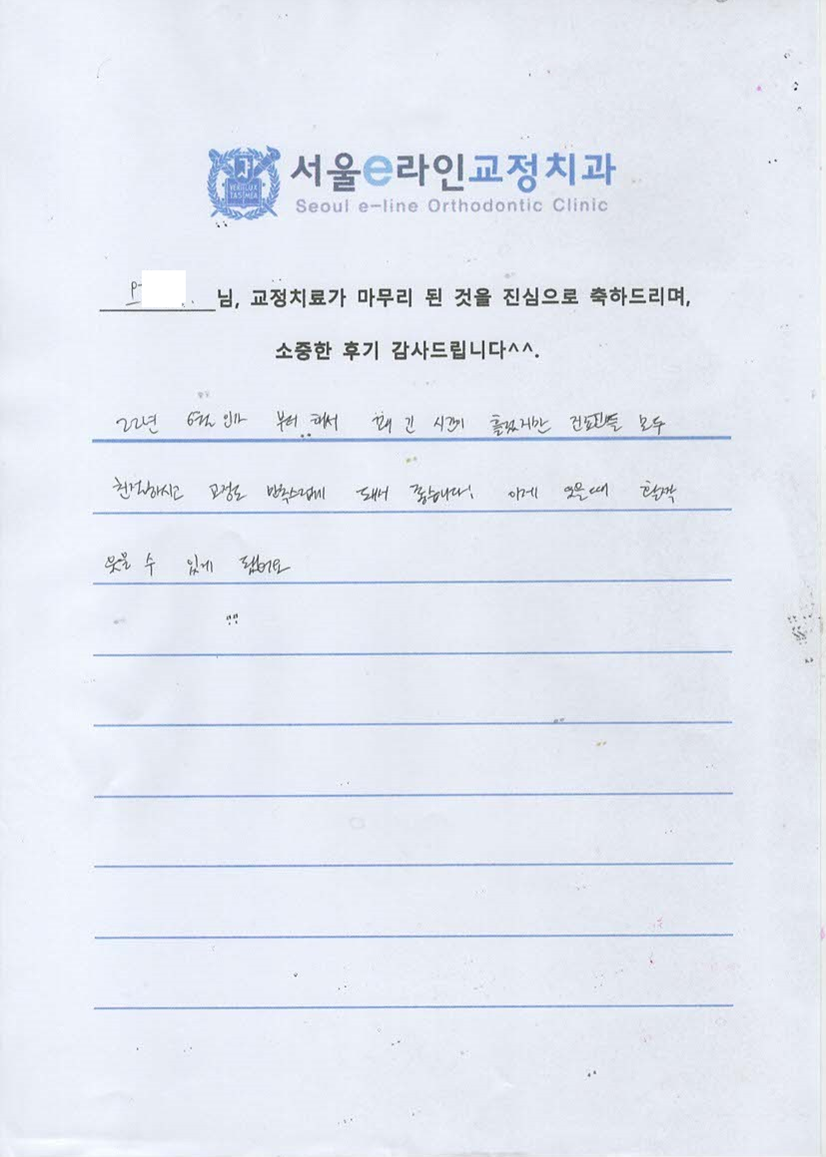 서울e라인교정치과
Seoul e-line Orthodontic Clinic
님, 교정치료가 마무리 된 것을 진심으로 축하드리며,
소중한 후기 감사드립니다^^.
22년 6월 인가 부터 해서 꽤 긴 시간이 흘렀지만 진료진들 모두
친절하시고 교정도 만족스럽게 돼서 좋습니다! 이제 웃을때 활짝
웃을 수 있게 됐어요